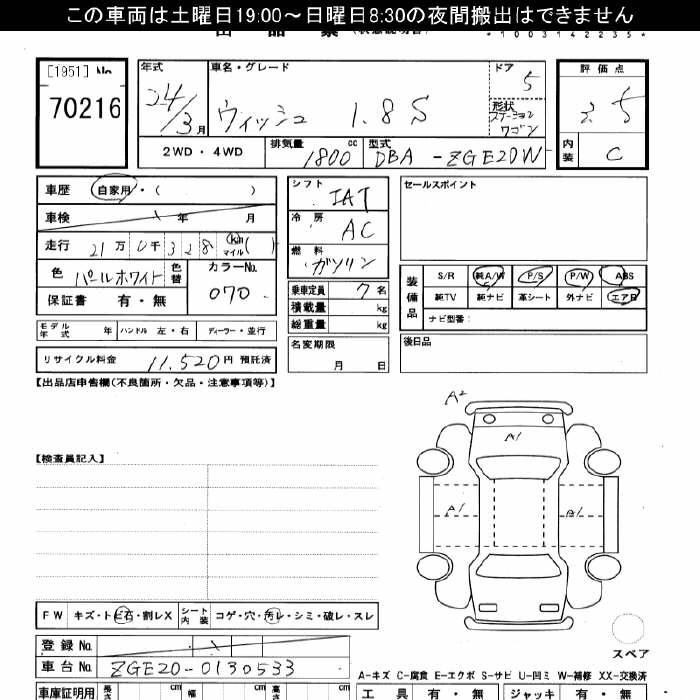 この車両は土曜日19:00～日曜日8:30の夜間搬出はできません
*10031422235*
[1951] No
70216
年式
24/3月
車名・グレード
ウィッシュ 1.8S
ドア
5
形状
ステーションワゴン
評価点
5
内装
C
2WD・4WD
排気量
1800cc
型式
DBA-ZGE20W
車歴 自家用・( )
車検 年 月
走行 21万0千328 km マイル( )
色 パールホワイト 色替
カラーNo.
070
保証書 有・無
モデル年式 年 ハンドル 左・右 ディーラー・並行
リサイクル料金 11,520円 預託済
シフト
IAT
冷房
AC
燃料
ガソリン
乗車定員 7名
積載量 kg
総重量 kg
名変期限
月 日
セールスポイント
装備品
S/R 純A/W P/S P/W ABS
純TV 純ナビ 革シート 外ナビ エアB
ナビ型番:
後日品
【出品店申告欄(不良箇所・欠品・注意事項等)】
【検査員記入】
A2
A1
A1 A1
FW キズ・トビ石・割レX シート内装 コゲ・穴・汚レ・シミ・破レ・スレ
スペア
登録No.
車台No. ZGE20-0130533
A-キズ C-腐食 E-エクボ S-サビ U-凹ミ W-補修 XX-交換済
車庫証明用 長さ cm 幅 cm 高さ cm
工具 有・無 ジャッキ 有・無